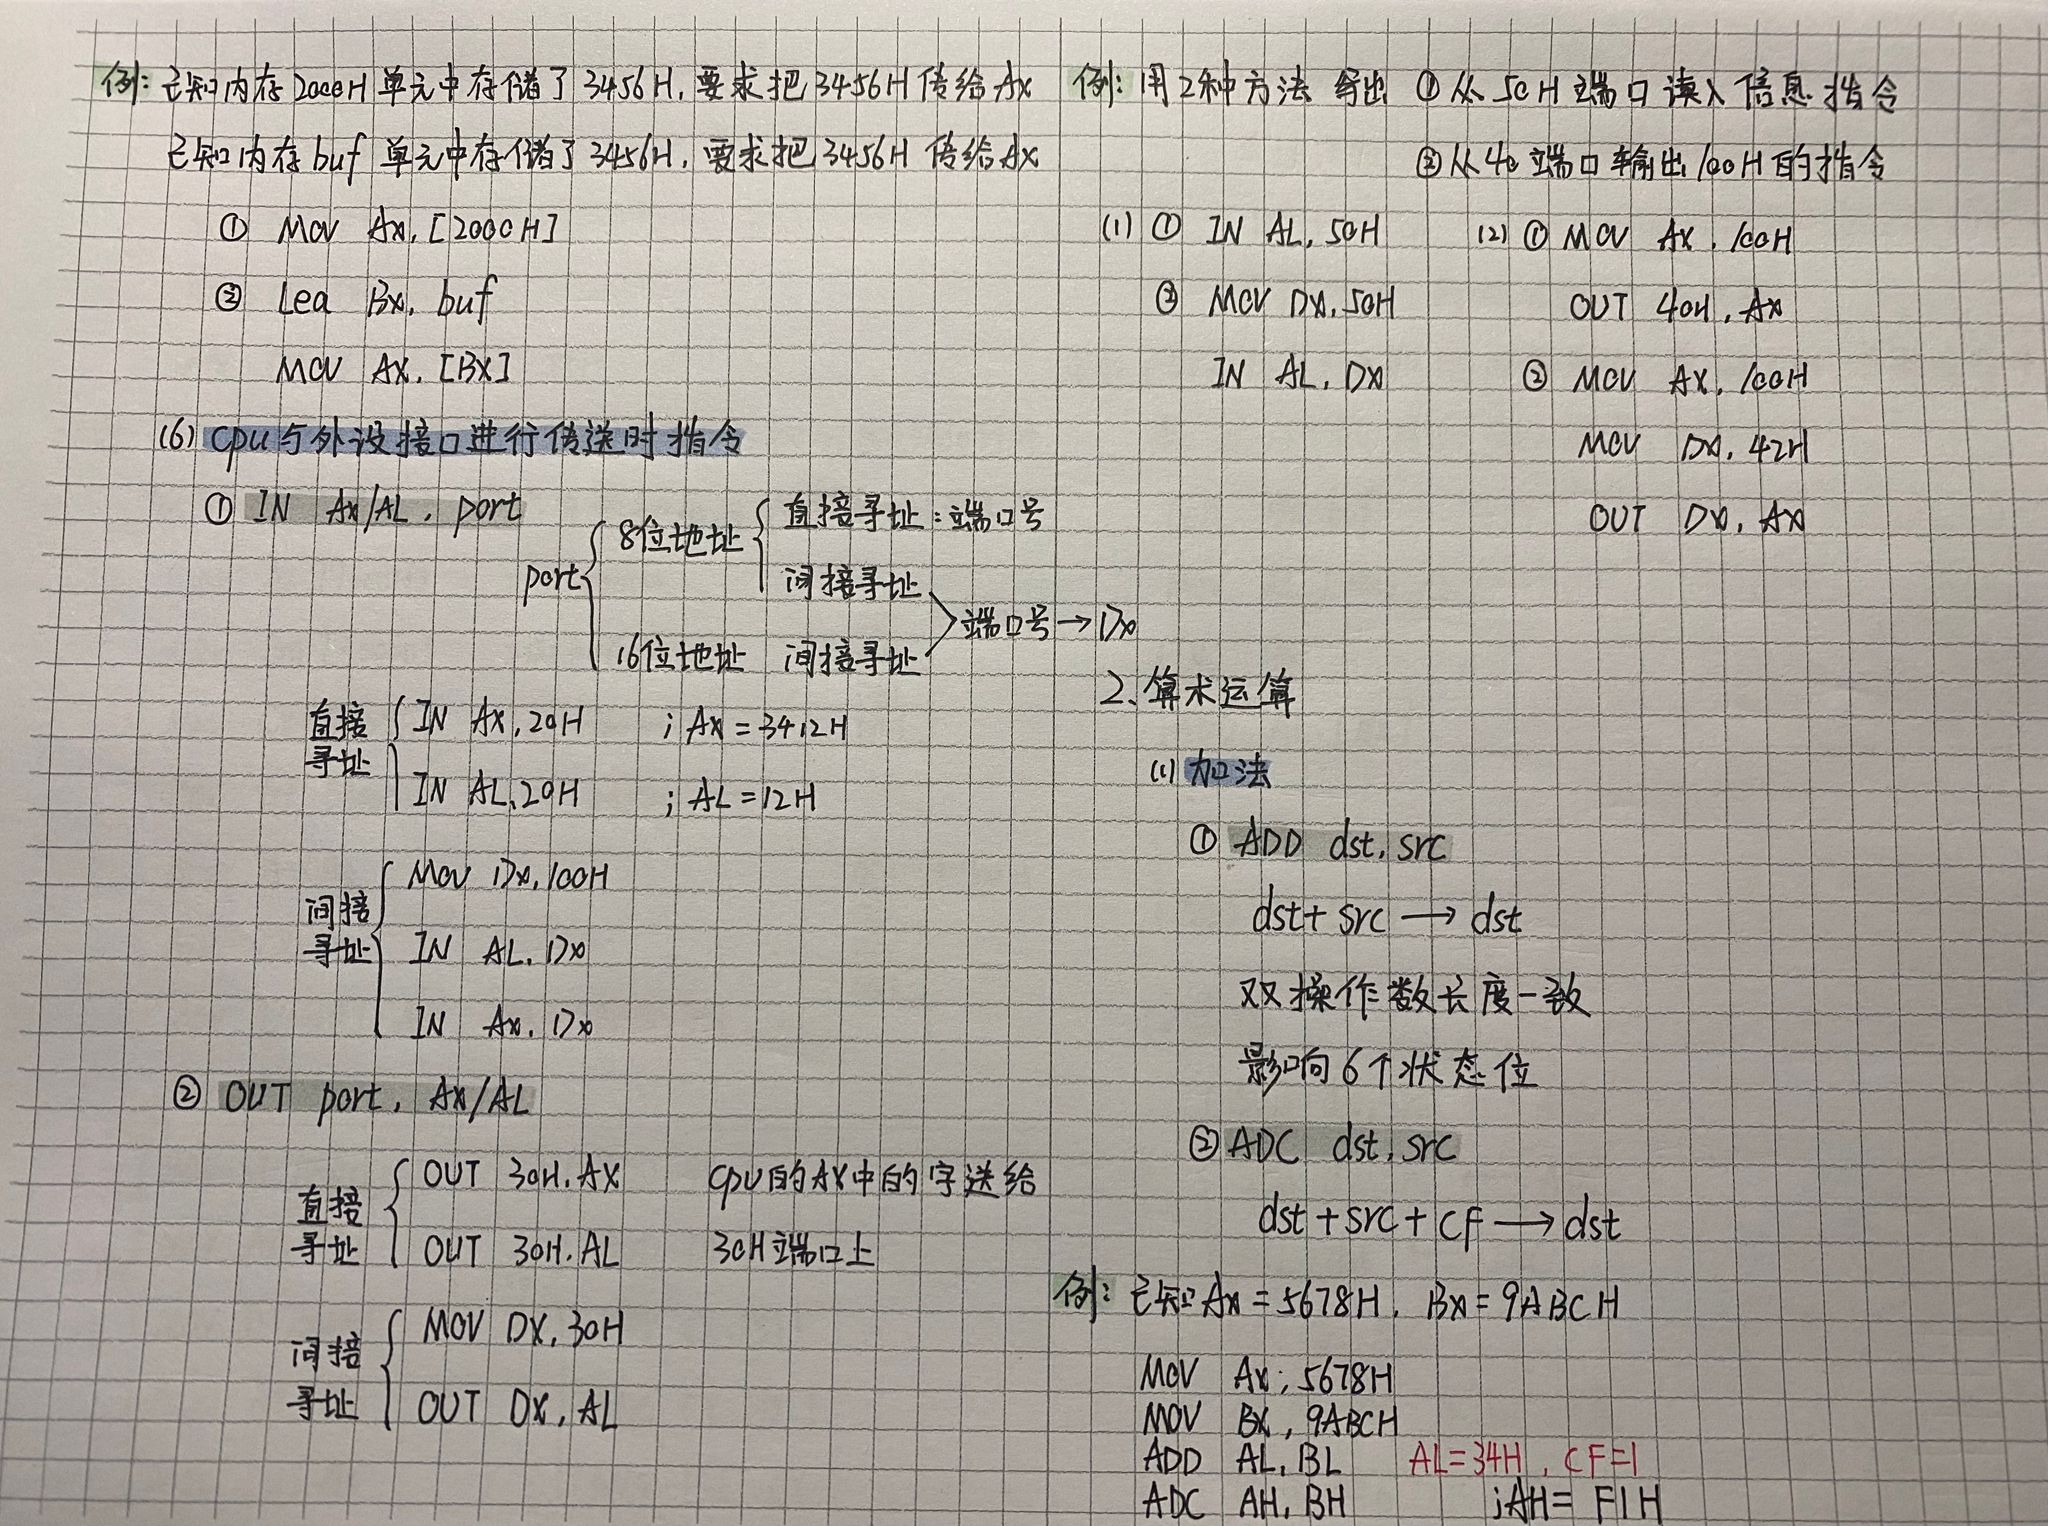 例: 已知内存2000H单元中存储了3456H,要求把3456H传给AX
已知内存buf单元中存储了3456H,要求把3456H传给AX
① MOV AX, [2000H]
② Lea BX, buf
MOV AX, [BX]
(6) cpu与外设接口进行传送时指令
① IN AX/AL, port
port
8位地址
直接寻址:端口号
间接寻址
16位地址 间接寻址
端口号→DX
直接寻址
IN AX, 20H ; AX=3412H
IN AL, 20H ; AL=12H
间接寻址
MOV DX, 100H
IN AL, DX
IN AX, DX
② OUT port, AX/AL
直接寻址
OUT 30H, AX cpu的AX中的字送给
OUT 30H, AL 30H端口上
间接寻址
MOV DX, 30H
OUT DX, AL
例: 用2种方法写出 ①从50H端口读入信息指令
②从40端口输出100H的指令
(1) ① IN AL, 50H
② MOV DX, 50H
IN AL, DX
(2) ① MOV AX, 100H
OUT 40H, AX
② MOV AX, 100H
MOV DX, 42H
OUT DX, AX
2、算术运算
(1) 加法
① ADD dst, src
dst+src→dst
双操作数长度一致
影响6个状态位
② ADC dst, src
dst+src+CF→dst
例: 已知AX=5678H, BX=9ABCH
MOV AX, 5678H
MOV BX, 9ABCH
ADD AL, BL AL=34H, CF=1
ADC AH, BH ;AH= F1H